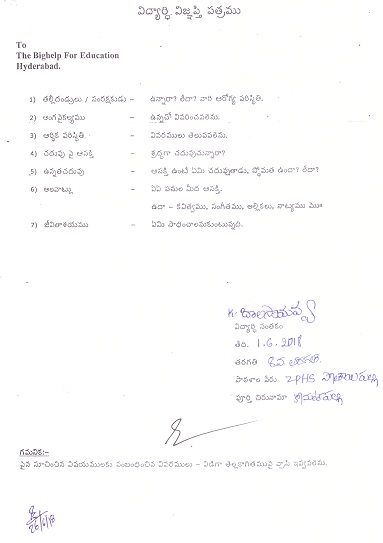 విద్యార్థి విజ్ఞప్తి పత్రము
To
The Bighelp For Education
Hyderabad.
1) తల్లిదండ్రులు / సంరక్షకుడు – ఉన్నారా? లేదా? వారి ఆరోగ్య పరిస్థితి.
2) అంగవైకల్యము – ఉన్నచో వివరించవలెను.
3) ఆర్థిక పరిస్థితి – వివరములు తెలుపవలెను.
4) చదువు పై ఆసక్తి – శ్రద్ధగా చదువుచున్నారా?
5) ఉన్నతచదువు – ఆసక్తి ఉంటే ఏమి చదువుతాడు, స్థోమత ఉందా? లేదా?
6) అలవాట్లు – ఏఏ పనుల మీద ఆసక్తి.
ఉదా – కవిత్వము, సంగీతము, అల్లికలు, నాట్యము మొ
7) జీవితాశయము – ఏమి సాధించాలనుకుంటున్నది.
K.
విద్యార్థి సంతకం
తేది. 1.6.2018
తరగతి
పాఠశాల పేరు ZPHS
పూర్తి చిరునామా
గమనిక:–
పైన సూచించిన విషయములకు సంబంధించిన వివరములు – విడిగా తెల్లకాగితముపై వ్రాసి ఇవ్వవలెను.
26/6/18